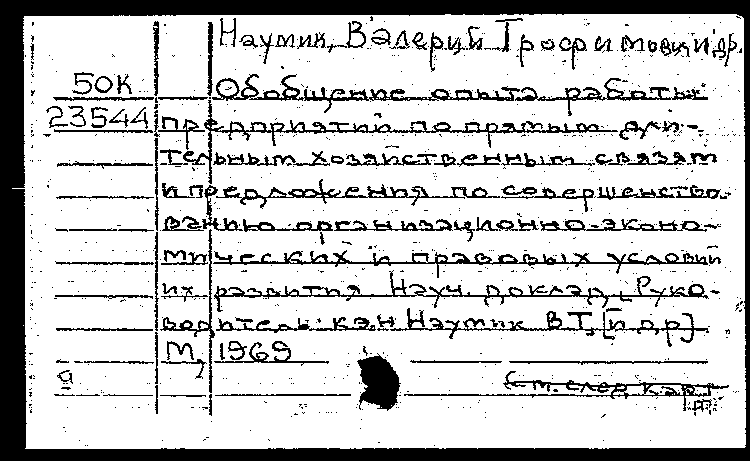 Наумик, Валерий Трофимович и др.
50К Обобщение опыта работы
23544 предприятий по прямым дли-
тельным хозяйственным связям
и предложения по совершенство-
ванию организационно-эконо-
мических и правовых условий
их развития. Науч. доклад. Руко-
водитель: к.э.н Наумик В.Т, [и др]
М, 1969
См. след карт